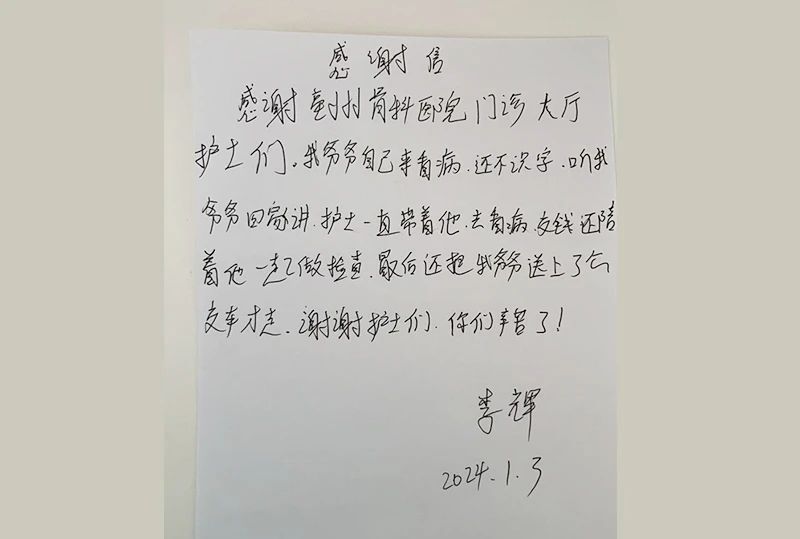 感谢信
感谢郑州骨科医院门诊大厅
护士们。我爷爷自己来看病.还不识字.听我
爷爷回家讲.护士一直带着他.去看病.交钱还陪
着他一起做检查.最后还把我爷爷送上了公
交车才走.谢谢护士们.你们辛苦了!
李辉
2024.1.3